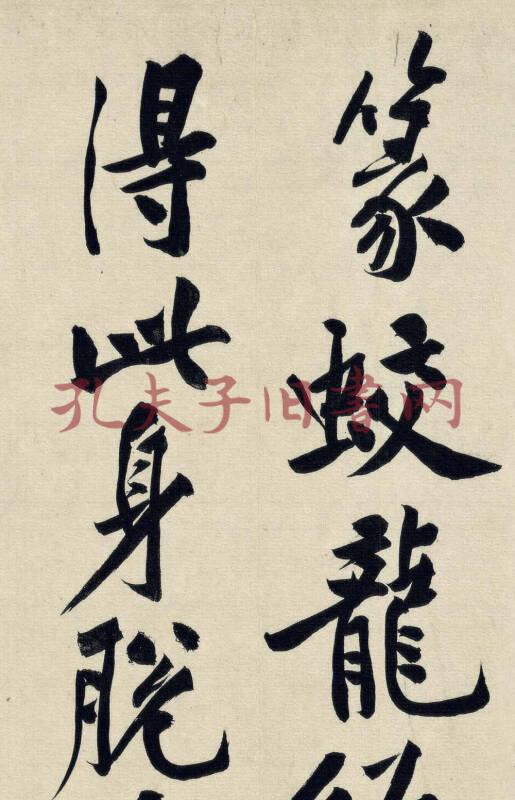 篆蛟龍
得此身脱
孔夫子旧书网